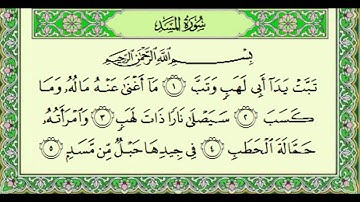 سُورَةُ المَسَدِ
بِسْمِ اللَّهِ الرَّحْمَٰنِ الرَّحِيمِ
تَبَّتْ يَدَآ أَبِي لَهَبٍ وَتَبَّ ١ مَآ أَغْنَىٰ عَنْهُ مَالُهُۥ وَمَا
كَسَبَ ٢ سَيَصْلَىٰ نَارًا ذَاتَ لَهَبٍ ٣ وَٱمْرَأَتُهُۥ
حَمَّالَةَ ٱلْحَطَبِ ٤ فِي جِيدِهَا حَبْلٌ مِّن مَّسَدٍۭ ٥